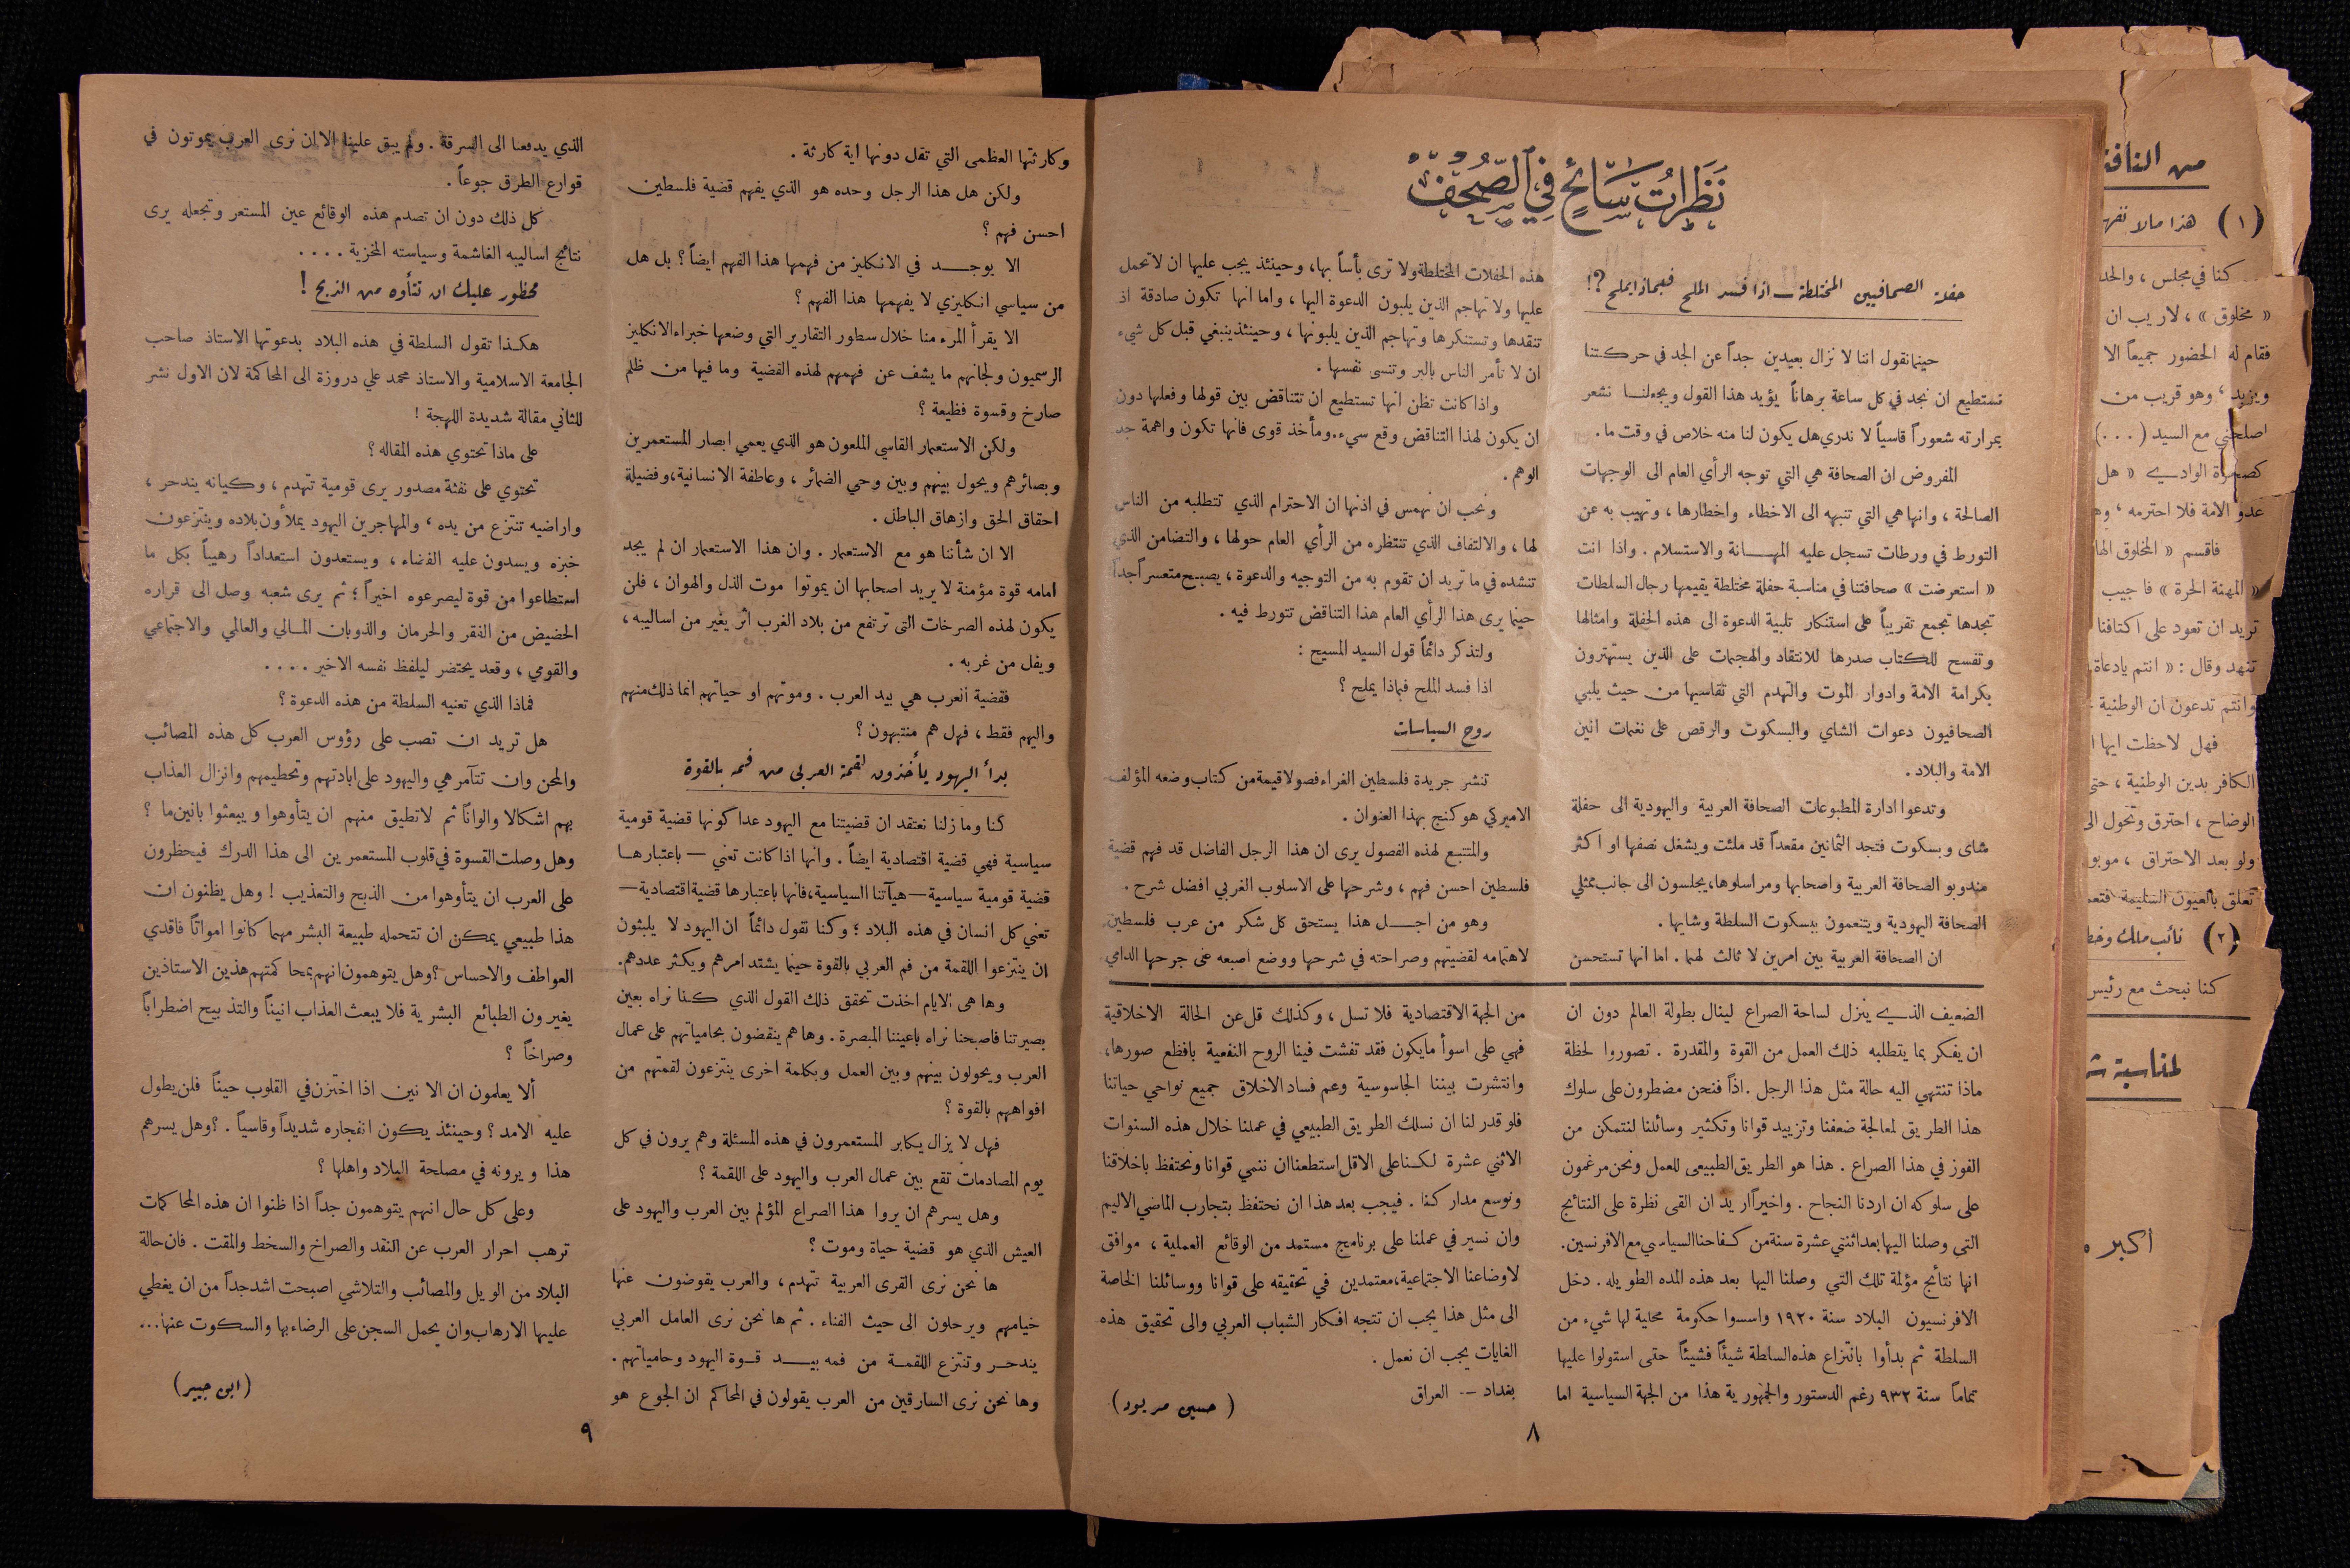 نَظَرَاتُ سَائِحٍ فِي الصُّحُفِ
حفلة الصحافيين المختلطة ــ اذا فسد الملح فبماذا يملح ?!
حينما نقول اننا لا نزال بعيدين جداً عن الجد في حركتنا
نستطيع ان نجد في كل ساعة برهاناً يؤيد هذا القول ويجعلنا نشعر
بمرارته شعوراً قاسياً لا ندري هل يكون لنا منه خلاص في وقت ما .
المفروض ان الصحافة هي التي توجه الرأي العام الى الوجهات
الصالحة ، وانها هي التي تنبهه الى الاخطاء واخطارها ، وتهيب به عن
التورط في ورطات تسجل عليه المهانة والاستسلام . واذا انت
« استعرضت » صحافتنا في مناسبة حفلة مختلطة يقيمها رجال السلطات
تجدها تجمع تقريباً على استنكار تلبية الدعوة الى هذه الحفلة وامثالها
وتفسح للكتاب صدرها للانتقاد والهجمات على الذين يستهترون
بكرامة الامة وادوار الموت والتهدم التي تقاسيها من حيث يلبي
الصحافيون دعوات الشاي والبسكوت والرقص على نغمات انين
الامة والبلاد .
وتدعوا ادارة المطبوعات الصحافة العربية واليهودية الى حفلة
شاى وبسكوت فتجد الثمانين مقعداً قد ملئت ويشغل نصفها او اكثر
مندوبو الصحافة العربية واصحابها ومراسلوها ، يجلسون الى جانب ممثلي
الصحافة اليهودية ويتنعمون ببسكوت السلطة وشايها .
ان الصحافة العربية بين امرين لا ثالث لهما . اما انها تستحسن
هذه الحفلات المختلطة ولا ترى بأساً بها ، وحينئذ يجب عليها ان لا تحمل
عليها ولا تهاجم الذين يلبون الدعوة اليها ، واما انها تكون صادقة اذ
تنقدها وتستنكرها وتهاجم الذين يلبونها ، وحينئذ ينبغي قبل كل شيء
ان لا تأمر الناس بالبر وتنسى نفسها .
واذا كانت تظن انها تستطيع ان تتناقض بين قولها وفعلها دون
ان يكون لهذا التناقض وقع سيء . ومأخذ قوى فانها تكون واهمة جد
الوهم .
ونحب ان نهمس في اذنها ان الاحترام الذي تتطلبه من الناس
لها ، والالتفاف الذي تنتظره من الرأي العام حولها ، والتضامن الذي
تنشده في ما تريد ان تقوم به من التوجيه والدعوة ، يصبح متعسراً جداً
حينما يرى هذا الرأي العام هذا التناقض تتورط فيه .
ولتذكر دائماً قول السيد المسيح :
اذا فسد الملح فبماذا يملح ؟
روح السياسات
تنشر جريدة فلسطين الغراء فصولا قيمة من كتاب وضعه المؤلف
الاميركي هوكنج بهذا العنوان .
والمتتبع لهذه الفصول يرى ان هذا الرجل الفاضل قد فهم قضية
فلسطين احسن فهم ، وشرحها على الاسلوب الغربي افضل شرح .
وهو من اجل هذا يستحق كل شكر من عرب فلسطين
لاهتمامه لقضيتهم وصراحته في شرحها ووضع اصبعه على جرحها الدامي
الضعيف الذي ينزل لساحة الصراع لينال بطولة العالم دون ان
ان يفكر بما يتطلبه ذلك العمل من القوة والمقدرة . تصوروا لحظة
ماذا تنتهي اليه حالة مثل هذا الرجل . اذاً فنحن مضطرون على سلوك
هذا الطريق لمعالجة ضعفنا وتزييد قوانا وتكثير وسائلنا لنتمكن من
الفوز في هذا الصراع . هذا هو الطريق الطبيعى للعمل ونحن مرغمون
على سلوكه ان اردنا النجاح . واخيراً اريد ان القى نظرة على النتائج
التى وصلنا اليها بعد اثنتي عشرة سنة من كفاحنا السياسي مع الافرنسين .
انها نتائج مؤلمة تلك التي وصلنا اليها بعد هذه المده الطويله . دخل
الافرنسيون البلاد سنة ١٩٢٠ واسسوا حكومة محلية لها شيء من
السلطة ثم بدأوا بانتزاع هذه السلطة شيئاً فشيئاً حتى استولوا عليها
تماماً سنة ٩٣٢ رغم الدستور والجمهورية هذا من الجهة السياسية اما
من الجهة الاقتصادية فلا تسل ، وكذلك قل عن الحالة الاخلاقية
فهي على اسوأ مايكون فقد تفشت فينا الروح النفعية بافظع صورها ،
وانتشرت بيننا الجاسوسية وعم فساد الاخلاق جميع نواحي حياتنا
فلو قدر لنا ان نسلك الطريق الطبيعي في عملنا خلال هذه السنوات
الاثني عشرة لكنا على الاقل استطعنا ان ننمي قوانا ونحتفظ باخلاقنا
ونوسع مداركنا . فيجب بعد هذا ان نحتفظ بتجارب الماضي الاليم
وان نسير في عملنا على برنامج مستمد من الوقائع العملية ، موافق
لاوضاعنا الاجتماعية ، معتمدين في تحقيقه على قوانا ووسائلنا الخاصة
الى مثل هذا يجب ان تتجه افكار الشباب العربي والى تحقيق هذه
الغايات يجب ان نعمل .
بغداد -- العراق
( حسين مريود )
٨
وكارثتها العظمى التي تقل دونها اية كارثة .
ولكن هل هذا الرجل وحده هو الذي يفهم قضية فلسطين
احسن فهم ؟
الا يوجد في الانكليز من فهمها هذا الفهم ايضاً ؟ بل هل
من سياسي انكليزي لا يفهمها هذا الفهم ؟
الا يقرأ المرء منا خلال سطور التقارير التي وضعها خبراء الانكليز
الرسميون ولجانهم ما يشف عن فهمهم لهذه القضية وما فيها من ظلم
صارخ وقسوة فظيعة ؟
ولكن الاستعمار القاسي الملعون هو الذي يعمي ابصار المستعمرين
وبصائرهم ويحول بينهم وبين وحي الضمائر ، وعاطفة الانسانية ، وفضيلة
احقاق الحق وازهاق الباطل .
الا ان شأننا هو مع الاستعمار . وان هذا الاستعمار ان لم يجد
امامه قوة مؤمنة لا يريد اصحابها ان يموتوا موت الذل والهوان ، فلن
يكون لهذه الصرخات التى ترتفع من بلاد الغرب اثر يغير من اساليبه ،
ويفل من غربه .
فقضية العرب هي بيد العرب . وموتهم او حياتهم انما ذلك منهم
واليهم فقط ، فهل هم منتبهون ؟
بدأ اليهود يأخذون لقمة العربي من فمه بالقوة
كنا وما زلنا نعتقد ان قضيتنا مع اليهود عدا كونها قضية قومية
سياسية فهي قضية اقتصادية ايضاً . وانها اذا كانت تعني — باعتبارها
قضية قومية سياسية — هيآتنا السياسية ، فانها باعتبارها قضية اقتصادية —
تعني كل انسان في هذه البلاد ؛ وكنا نقول دائماً ان اليهود لا يلبثون
ان ينتزعوا اللقمة من فم العربي بالقوة حينما يشتد امرهم ويكثر عددهم .
وها هى الايام اخذت تحقق ذلك القول الذي كنا نراه بعين
بصيرتنا فاصبحنا نراه باعيننا المبصرة . وها هم ينقضون بحامياتهم على عمال
العرب ويحولون بينهم وبين العمل وبكلمة اخرى ينتزعون لقمتهم من
افواههم بالقوة ؟
فهل لا يزال يكابر المستعمرون في هذه المسئلة وهم يرون في كل
يوم المصادمات تقع بين عمال العرب واليهود على اللقمة ؟
وهل يسرهم ان يروا هذا الصراع المؤلم بين العرب واليهود على
العيش الذي هو قضية حياة وموت ؟
ها نحن نرى القرى العربية تتهدم ، والعرب يقوضون عنها
خيامهم ويرحلون الى حيث الفناء . ثم ها نحن نرى العامل العربي
يندحر وتنتزع اللقمة من فمه بيد قوة اليهود وحامياتهم .
وها نحن نرى السارقين من العرب يقولون في المحاكم ان الجوع هو
الذي يدفعنا الى السرقة . ولم يبق علينا الا ان نرى العرب يموتون في
قوارع الطرق جوعاً .
كل ذلك دون ان تصدم هذه الوقائع عين المستعمر وتجعله يرى
نتائج اساليبه الغاشمة وسياسته المخزية ....
محظور عليك ان تتأوه من الذبح !
هكذا تقول السلطة في هذه البلاد بدعوتها الاستاذ صاحب
الجامعة الاسلامية والاستاذ محمد علي دروزة الى المحاكمة لان الاول نشر
للثاني مقالة شديدة اللهجة !
على ماذا تحتوي هذه المقاله ؟
تحتوي على نفثة مصدور يرى قومية تتهدم ، وكيانه يندحر ،
واراضيه تنتزع من يده ، والمهاجرين اليهود يملأون بلاده وينتزعون
خبزه ويسدون عليه الفضاء ، ويستعدون استعداداً رهيباً بكل ما
استطاعوا من قوة ليصرعوه اخيراً ؛ ثم يرى شعبه وصل الى قراره
الحضيض من الفقر والحرمان والذوبان المالي والعالمي والاجتماعي
والقومي ، وقعد يحتضر ليلفظ نفسه الاخير ....
فماذا الذي تعنيه السلطة من هذه الدعوة ؟
هل تريد ان تصب على رؤوس العرب كل هذه المصائب
والمحن وان تتآمر هي واليهود على ابادتهم وتحطيمهم وانزال العذاب
بهم اشكالا والواناً ثم لا تطيق منهم ان يتأوهوا ويبعثوا بانين ما ؟
وهل وصلت القسوة في قلوب المستعمرين الى هذا الدرك فيحظرون
على العرب ان يتأوهوا من الذبح والتعذيب ! وهل يظنون ان
هذا طبيعي يمكن ان تتحمله طبيعة البشر مهما كانوا امواتاً فاقدي
العواطف والاحساس ؟ وهل يتوهمون انهم بمحاكمتهم هذين الاستاذين
يغيرون الطبائع البشرية فلا يبعث العذاب انيناً والتذبيح اضطراباً
وصراخاً ؟
ألا يعلمون ان الانين اذا اختزن في القلوب حيناً فلن يطول
عليه الامد ؟ وحينئذ يكون انفجاره شديداً وقاسياً . ؟ وهل يسرهم
هذا ويرونه في مصلحة البلاد واهلها ؟
وعلى كل حال انهم يتوهمون جداً اذا ظنوا ان هذه المحاكمات
ترهب احرار العرب عن النقد والصراخ والسخط والمقت . فان حالة
البلاد من الويل والمصائب والتلاشي اصبحت اشد جداً من ان يغطي
عليها الارهاب وان يحمل السجن على الرضاء بها والسكوت عنها ...
( ابن جبير )
٩
من النافذ
( ١ ) هذا ما لا نفه
كنا في مجلس ، والحد
« مخلوق » ، لاريب ان
فقام له الحضور جميعاً الا
ويزيد ، وهو قريب من
اصلحني مع السيد ( ... )
الوادي « هل
عدو الامة فلا احترمه ، وه
فاقسم « المخلوق الها
« المهنة الحرة » فاجيب
تريد ان تعود على اكتافنا
تنهد وقال : « انتم يادعاة
وانتم تدعون ان الوطنية
فهل لاحظت ايها ا
الكافر بدين الوطنية ، حتى
الوضاح ، احترق وتحول الى
ولو بعد الاحتراق ، موبو
تعلق بالعيون السليمة فتعم
( ٢ ) نائب ملك وخط
كنا نبحث مع رئيس
لمناسبة ش
اكبر م